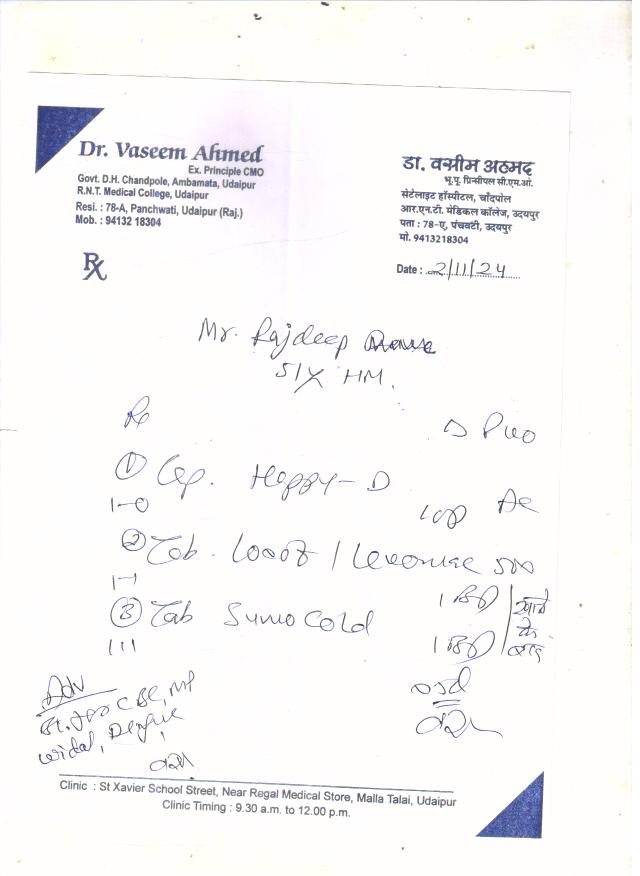 Dr. Vaseem Ahmed
Ex. Principle CMO
Govt. D.H. Chandpole, Ambamata, Udaipur
R.N.T. Medical College, Udaipur
Resi. : 78-A, Panchwati, Udaipur (Raj.)
Mob. : 94132 18304
डा. वसीम अहमद
भू.पू. प्रिन्सीपल सी.एम.ओ.
सेटेलाइट हॉस्पीटल, चाँदपोल
आर.एन.टी. मेडिकल कॉलेज, उदयपुर
पता : 78-ए, पंचवटी, उदयपुर
मो. 9413218304
Rx
Date : 2/11/24
Mr. Rajdeep
51Y HM.
① Cap. Happy-D
1-0
② Tab. 500
1-1
③ Tab Sumo Cold
1 BD
1 BD
खाने के बाद
111
Adv
Bl. for CBC, MP
Widal, Dengue
Clinic : St Xavier School Street, Near Regal Medical Store, Malla Talai, Udaipur
Clinic Timing : 9.30 a.m. to 12.00 p.m.